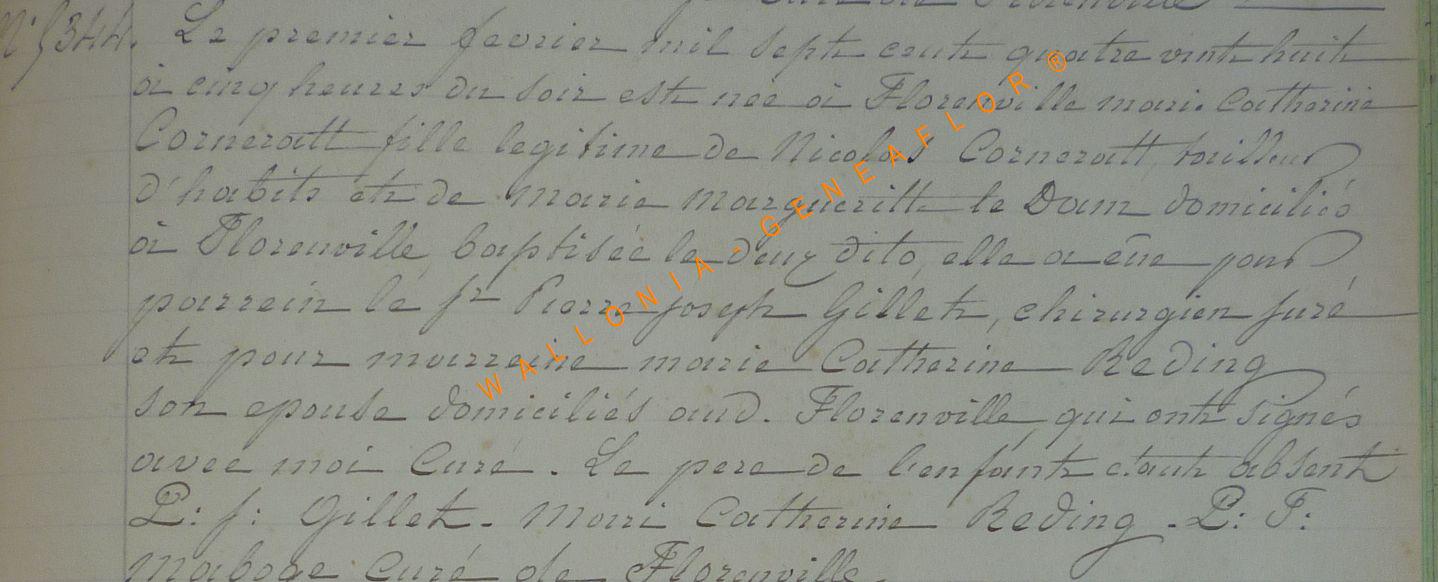 curé de Florenville
N° 5344. Le premier fevrier mil sept cent quatre vint huit
à cinq heures du soir est née à Florenville marie Catherine
Corneratt fille legitime de Nicolas Corneratt, tailleur
d'habits et de marie margueritte le Dam domiciliés
à Florenville, baptisée le deux dito, elle a eue pour
parrein le sr Pierre joseph Gillet, chirurgien juré
et pour marreine marie Catherine Reding
son epouse domiciliés aud. Florenville, qui ont signés
avec moi Curé. Le pere de l'enfant etant absent
P: j: Gillet. Mari Catherine Reding. P: F:
curé de Florenville.
WALLONIA-GENEAFLOR®